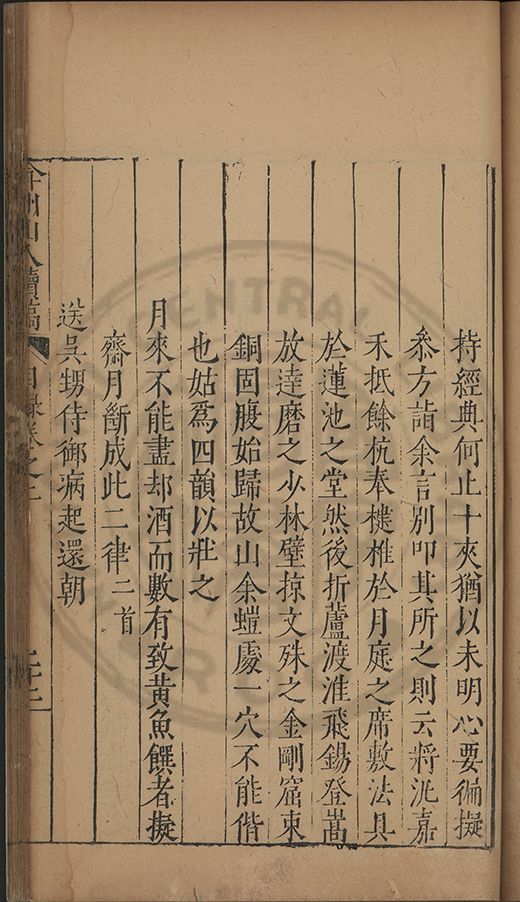 持經典何止十夾猶以未明心要徧擬
叅方詣余言別叩其所之則云將汎嘉
禾抵餘杭奉揵椎於月庭之席敷法具
於蓮池之堂然後折蘆渡淮飛錫登嵩
放達磨之少林壁掠文殊之金剛窟束
銅固腹始歸故山余螘處一穴不能偕
也姑爲四韻以壯之
月來不能盡却酒而數有致黃魚饌者擬
齋月斷成此二律二首
送吳甥侍御病起還朝
弇州山人續稿
目錄卷之二
CENTRAL